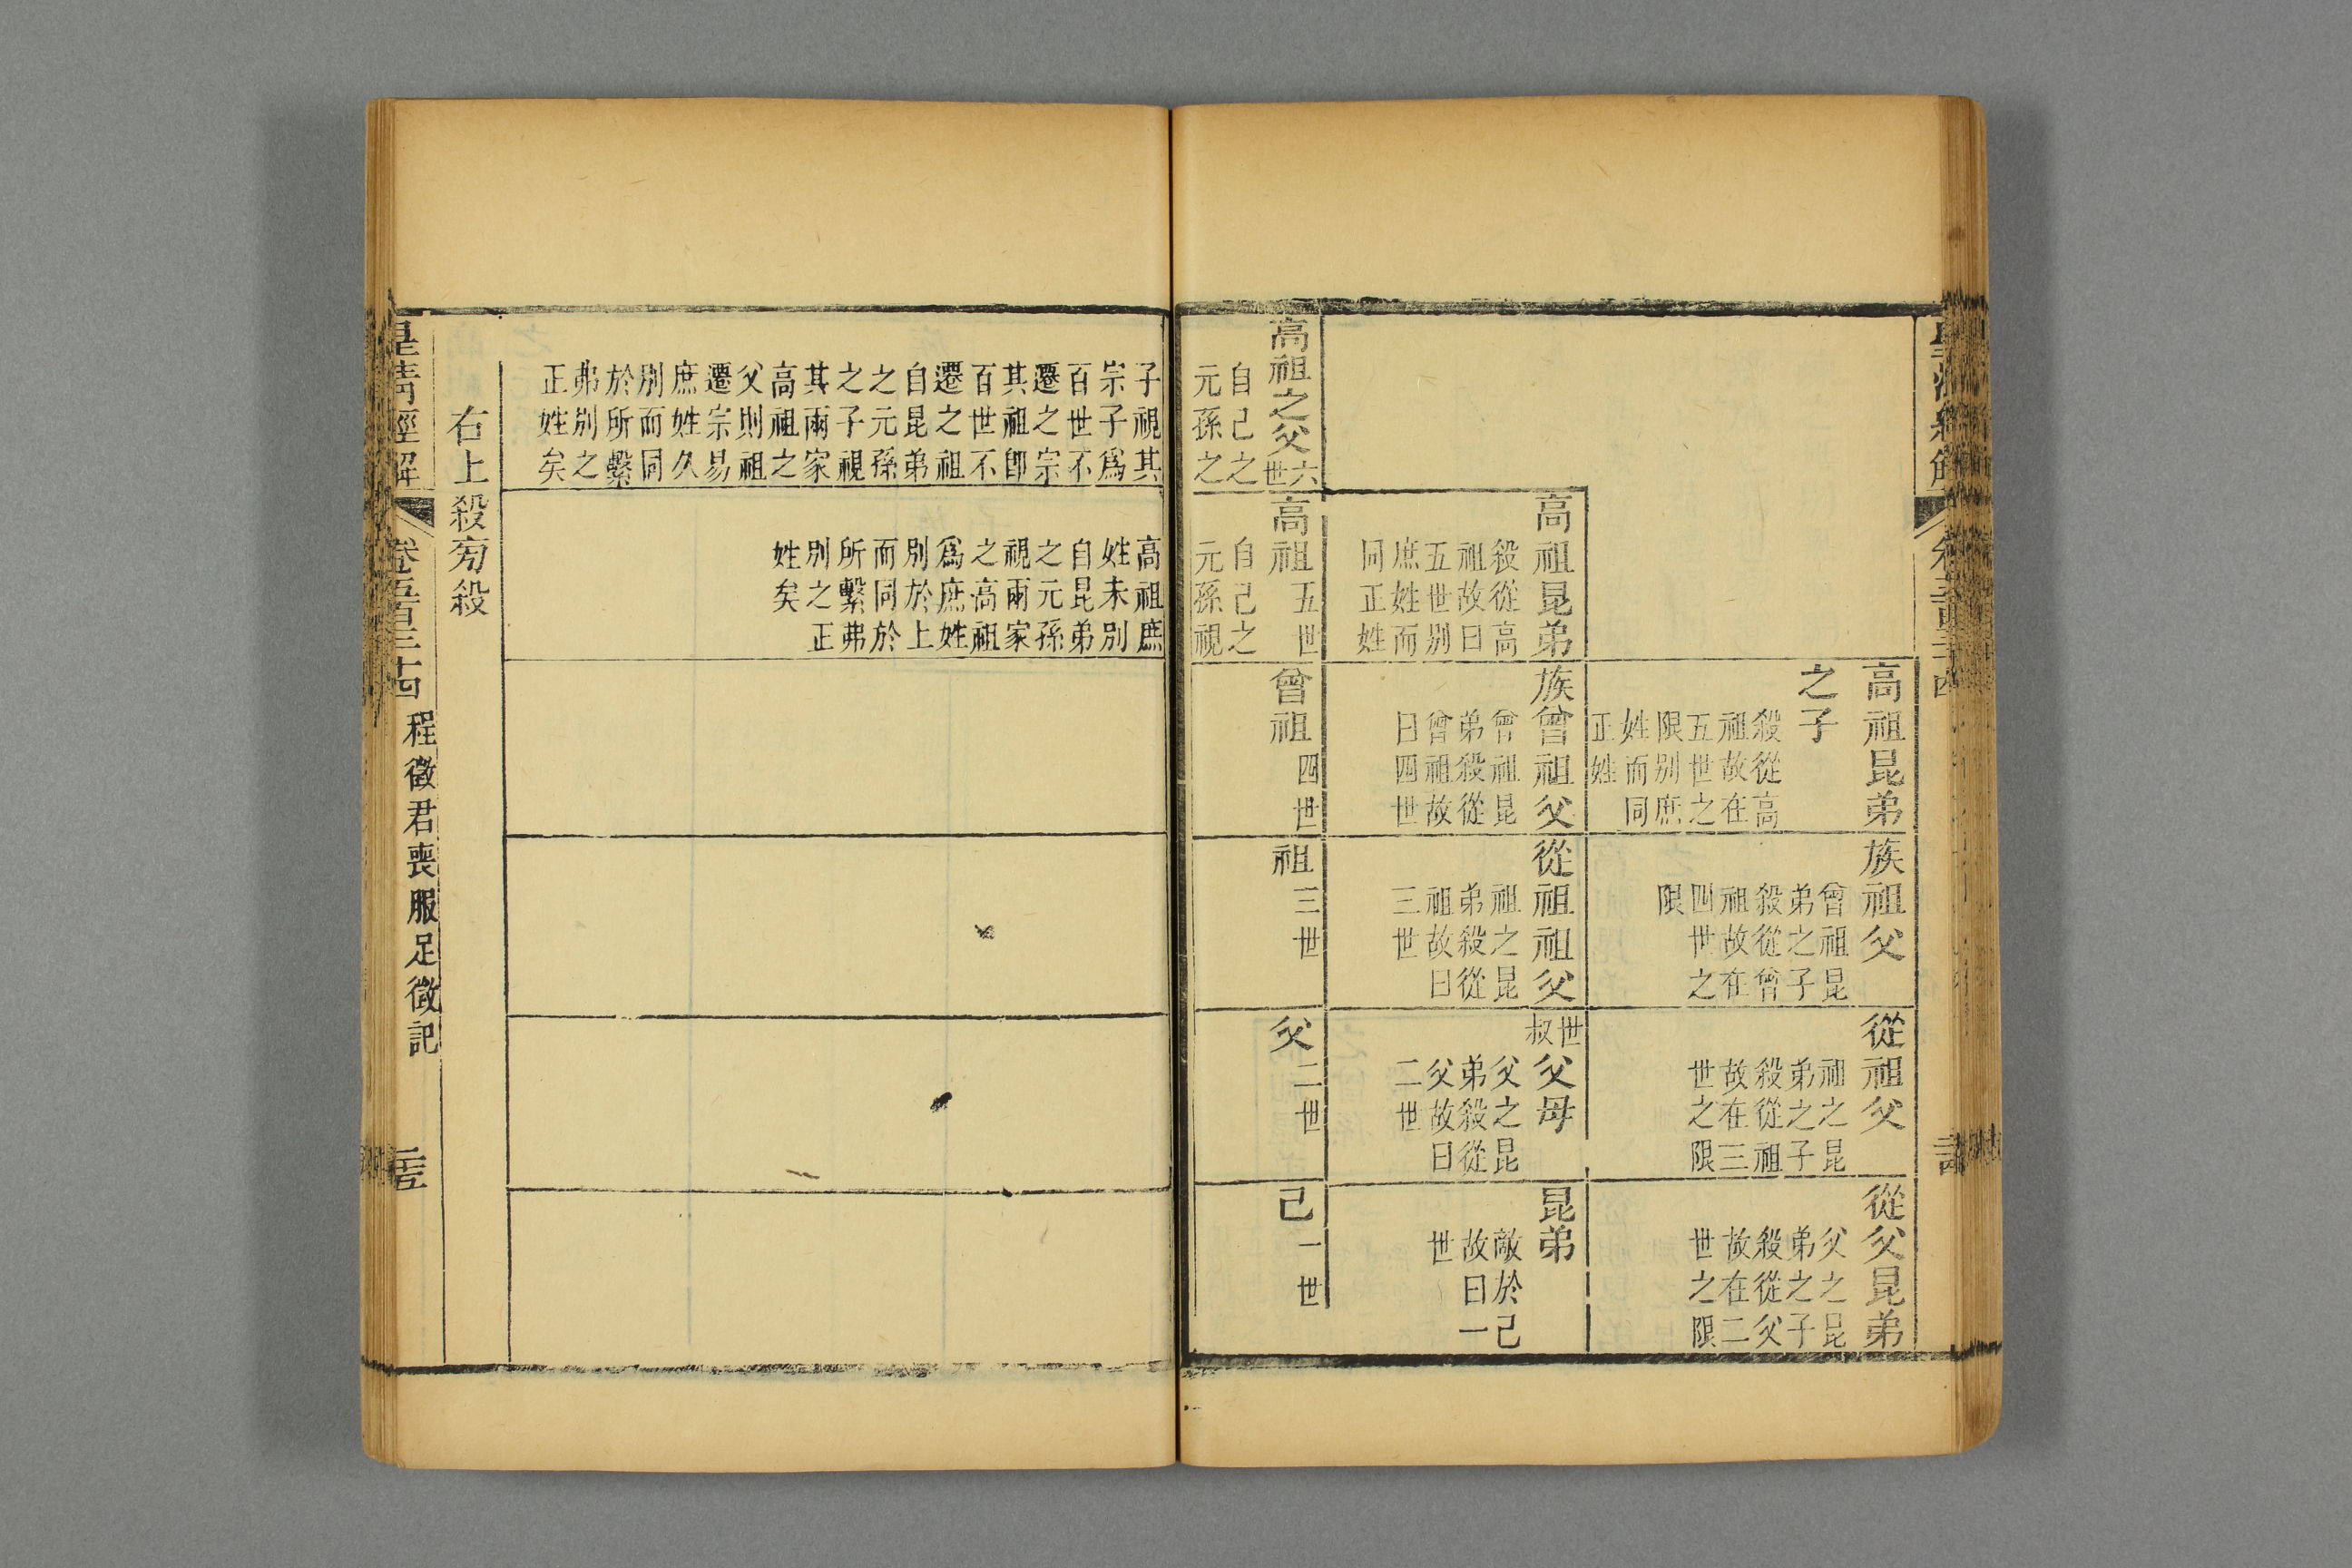 皇清經解
高祖昆弟
之子
殺從高
祖故在
五世之
限別庶
姓而同
正姓
族祖父
曾祖昆
弟之子
殺從曾
祖故在
四世之
限
從祖父
祖之昆
弟之子
殺從祖
故在三
世之限
從父昆弟
父之昆
弟之子
殺從父
故在二
世之限
高祖昆弟
殺從高
祖故曰
五世別
庶姓而
同正姓
族曾祖父
曾祖昆
弟殺從
曾祖故
曰四世
從祖祖父
祖之昆
弟殺從
祖故曰
三世
世叔父母
父之昆
弟殺從
父故曰
二世
昆弟
敵於己
故曰一
世
高祖之父六世
自己之
元孫之
高祖五世
自己之
元孫視
曾祖四世
祖三世
父二世
己一世
子視其
宗子爲
百世不
遷之宗
其祖卽
百世不
遷之祖
自昆弟
之元孫
之子視
其兩家
高祖之
父則祖
遷宗易
庶姓久
別而同
於所繫
弗別之
正姓矣
高祖庶
姓未別
自昆弟
之元孫
視兩家
之高祖
爲庶姓
別於上
而同於
所繫弗
別之正
姓矣
右上殺旁殺
皇清經解 卷五百三十四 程徵君喪服足徵記